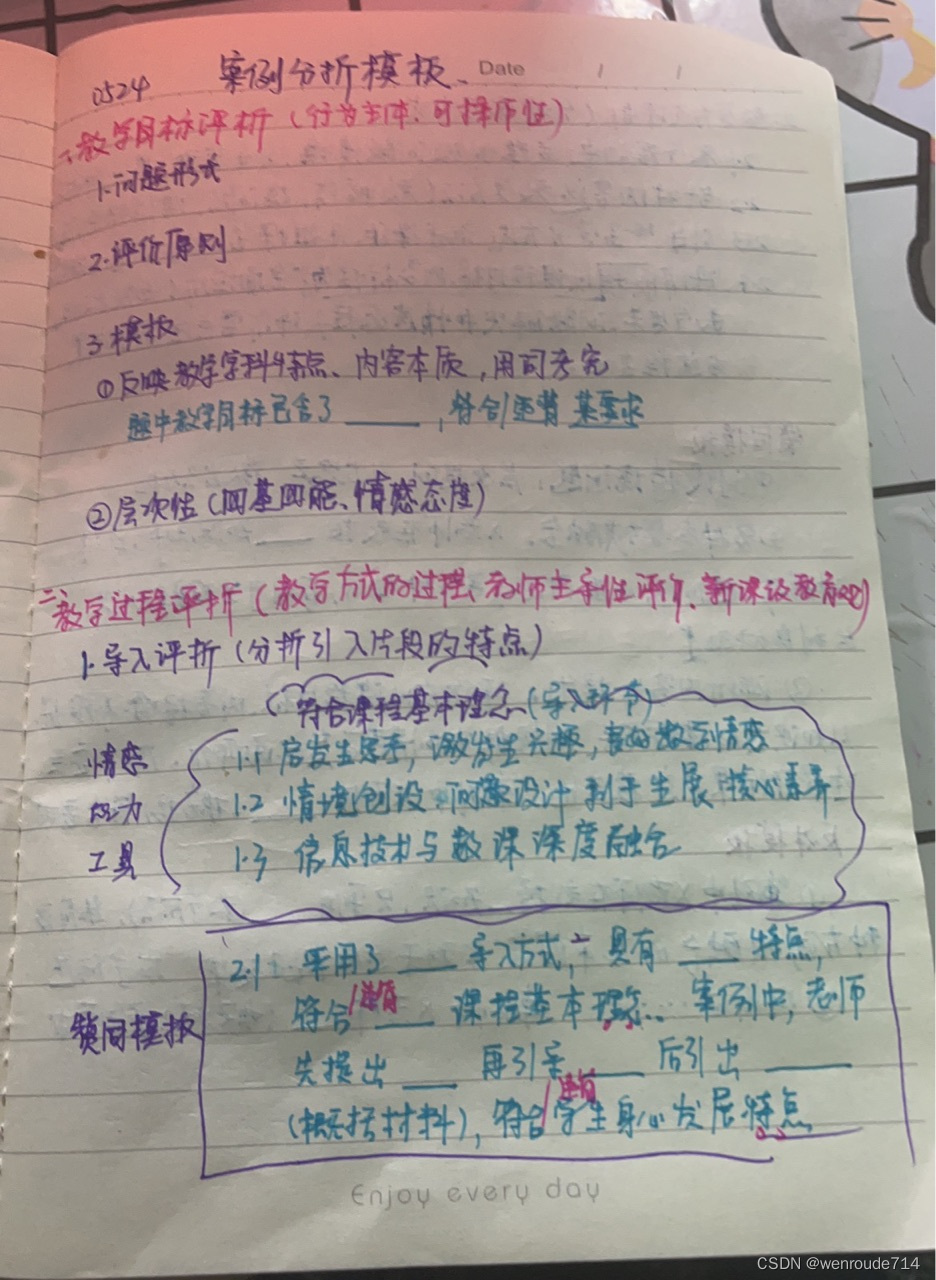 0524 案例分析模板、 Date / /
一、教学目标评析（行为主体、可操作性）
1.问题形式
2.评价原则
3.模板
①反映教学学科特点、内容本质，用词考究
题中教学目标包含了____，符合/违背 某要求
②层次性（四基四能、情感态度）
二、教学过程评析（教学方式的过程、教师主导性评价、新课设教育观）
1.导入评析（分析引入片段的特点）
符合课程基本理念（导入环节）
情感 1.1 启发生思考，激发生兴趣，喜好数学情感
能力 1.2 情境创设、问题设计 利于生展 核心素养
工具 1.3 信息技术与数课深度融合
2.1 采用了____导入方式，具有____特点，
符合/违背____课程基本理念.. 案例中，老师
锁问模板
先提出____ 再引导____ 后引出____
（概括材料），符合/违背学生身心发展特点
Enjoy every day
CSDN @wenroude714